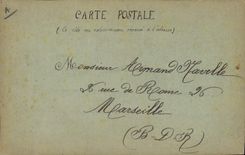 CARTE POSTALE
(Ce côté est exclusivement réservé à l'adresse)
Monsieur Armand Havelle
26 rue de Rome 26
Marseille
(B-D-R)